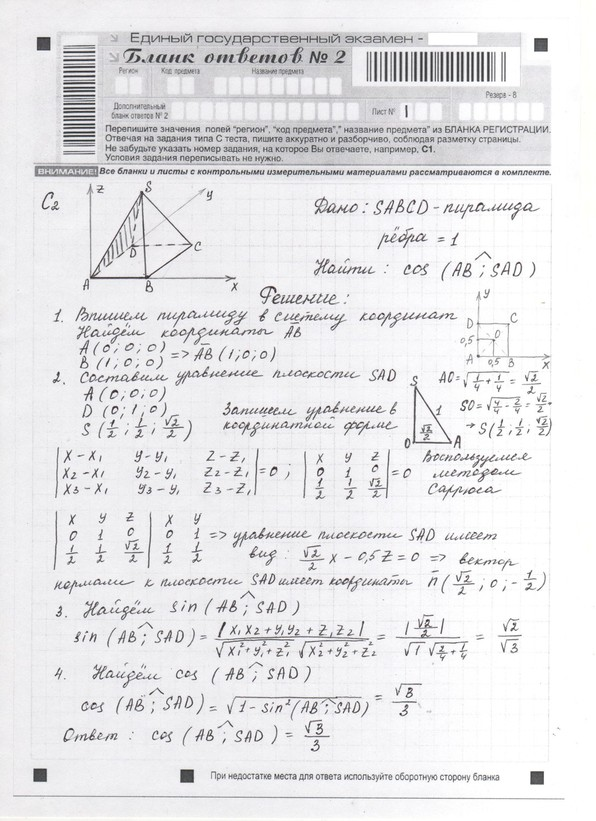 Единый государственный экзамен -
Бланк ответов № 2
Регион Код предмета Название предмета
Резерв - 8
Дополнительный
бланк ответов № 2
Лист № 1
Перепишите значения полей "регион", "код предмета", "название предмета" из БЛАНКА РЕГИСТРАЦИИ.
Отвечая на задания типа С теста, пишите аккуратно и разборчиво, соблюдая разметку страницы.
Не забудьте указать номер задания, на которое Вы отвечаете, например, С1.
Условия задания переписывать не нужно.
ВНИМАНИЕ! Все бланки и листы с контрольными измерительными материалами рассматриваются в комплекте.
C2
z S y
D C
A B x
Дано: SABCD - пирамида
рёбра = 1
Найти: cos (AB ^; SAD)
Решение:
1. Впишем пирамиду в систему координат
Найдём координаты AB
A (0; 0; 0)
B (1; 0; 0) => AB (1; 0; 0)
y
D C
0,5 O
A 0,5 B x
2. Составим уравнение плоскости SAD
A (0; 0; 0)
D (0; 1; 0)
S (1/2; 1/2; √2/2)
Запишем уравнение в
координатной форме
S
1
O √2/2 A
AO = √(1/4 + 1/4) = √2/2
SO = √(4/4 - 2/4) = √2/2
→ S (1/2; 1/2; √2/2)
| x - x₁ y - y₁ z - z₁ |
| x₂ - x₁ y₂ - y₁ z₂ - z₁ | = 0;
| x₃ - x₁ y₃ - y₁ z₃ - z₁ |
| x y z |
| 0 1 0 | = 0
| 1/2 1/2 √2/2 |
Воспользуемся
методом
Саррюса
| x y z | x y
| 0 1 0 | 0 1 => уравнение плоскости SAD имеет
| 1/2 1/2 √2/2 | 1/2 1/2 вид: √2/2 x - 0,5z = 0 => вектор
нормали к плоскости SAD имеет координаты n (√2/2; 0; -1/2)
3. Найдём sin (AB ^; SAD)
sin (AB ^; SAD) = |x₁x₂ + y₁y₂ + z₁z₂| / (√(x₁² + y₁² + z₁²) √(x₂² + y₂² + z₂²)) = |√2/2| / (√1 √(2/4 + 1/4)) = √2/√3
4. Найдём cos (AB ^; SAD)
cos (AB ^; SAD) = √(1 - sin² (AB ^; SAD)) = √3/3
Ответ: cos (AB ^; SAD) = √3/3
При недостатке места для ответа используйте оборотную сторону бланка